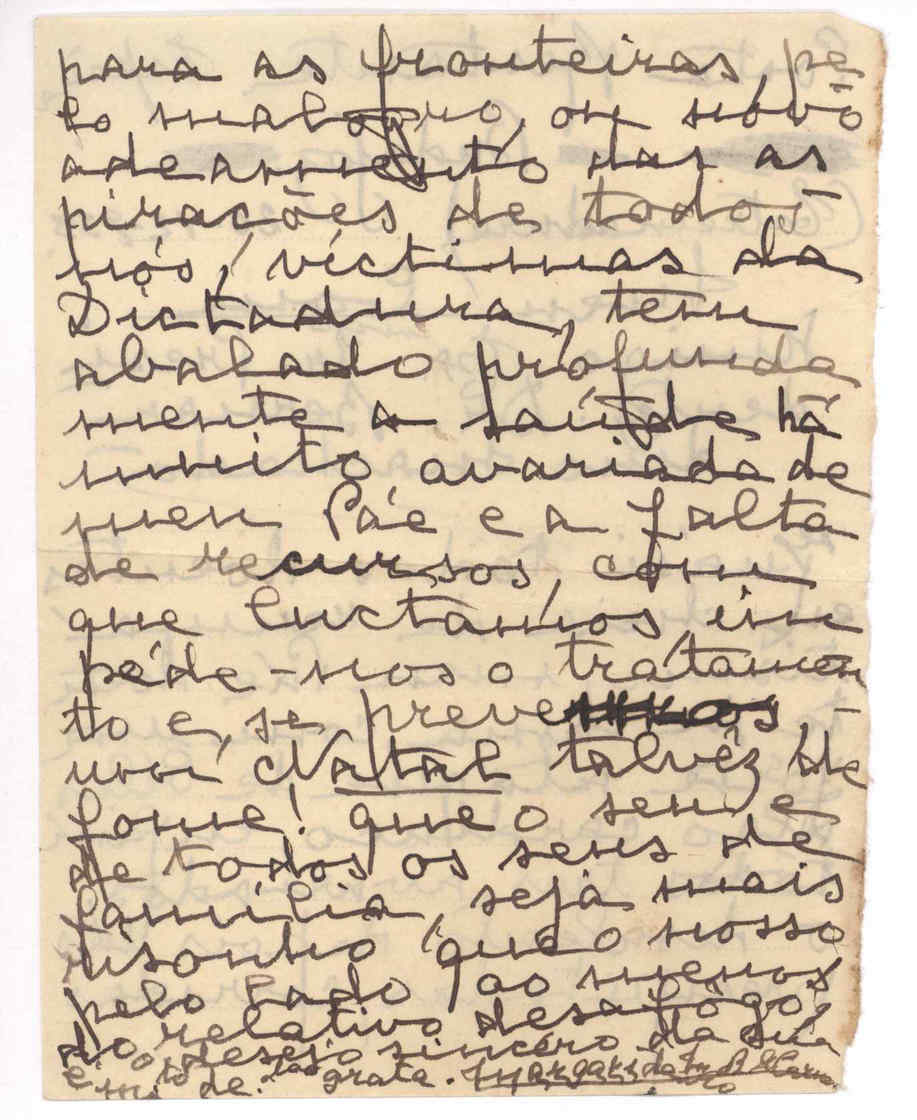 para as fronteiras, pe
lo malogro, ou nôvo
adeamento das as
pirações de todos
nós, víctimas da
Dictadura, tem
abalado profunda
mente a saúde há
muito avariada de
meu Páe e a falta
de recursos, com
que luctamos, im
péde-nos o tratamen
to e, se preve
um Natal talvêz de
fome! que o seu e
de todos os seus de
família, seja mais
risonho que o nosso
pelo lado ao menos
do relativo desafôgo!
é o desejo sincéro da sua
mto de grata. Margarida